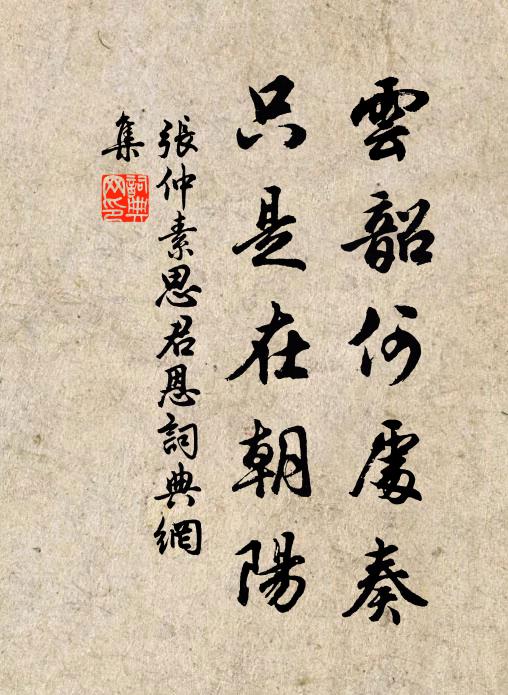 雲韶何處奏
只是在朝陽
張仲素思君恩詞典網
集
詞典
网印